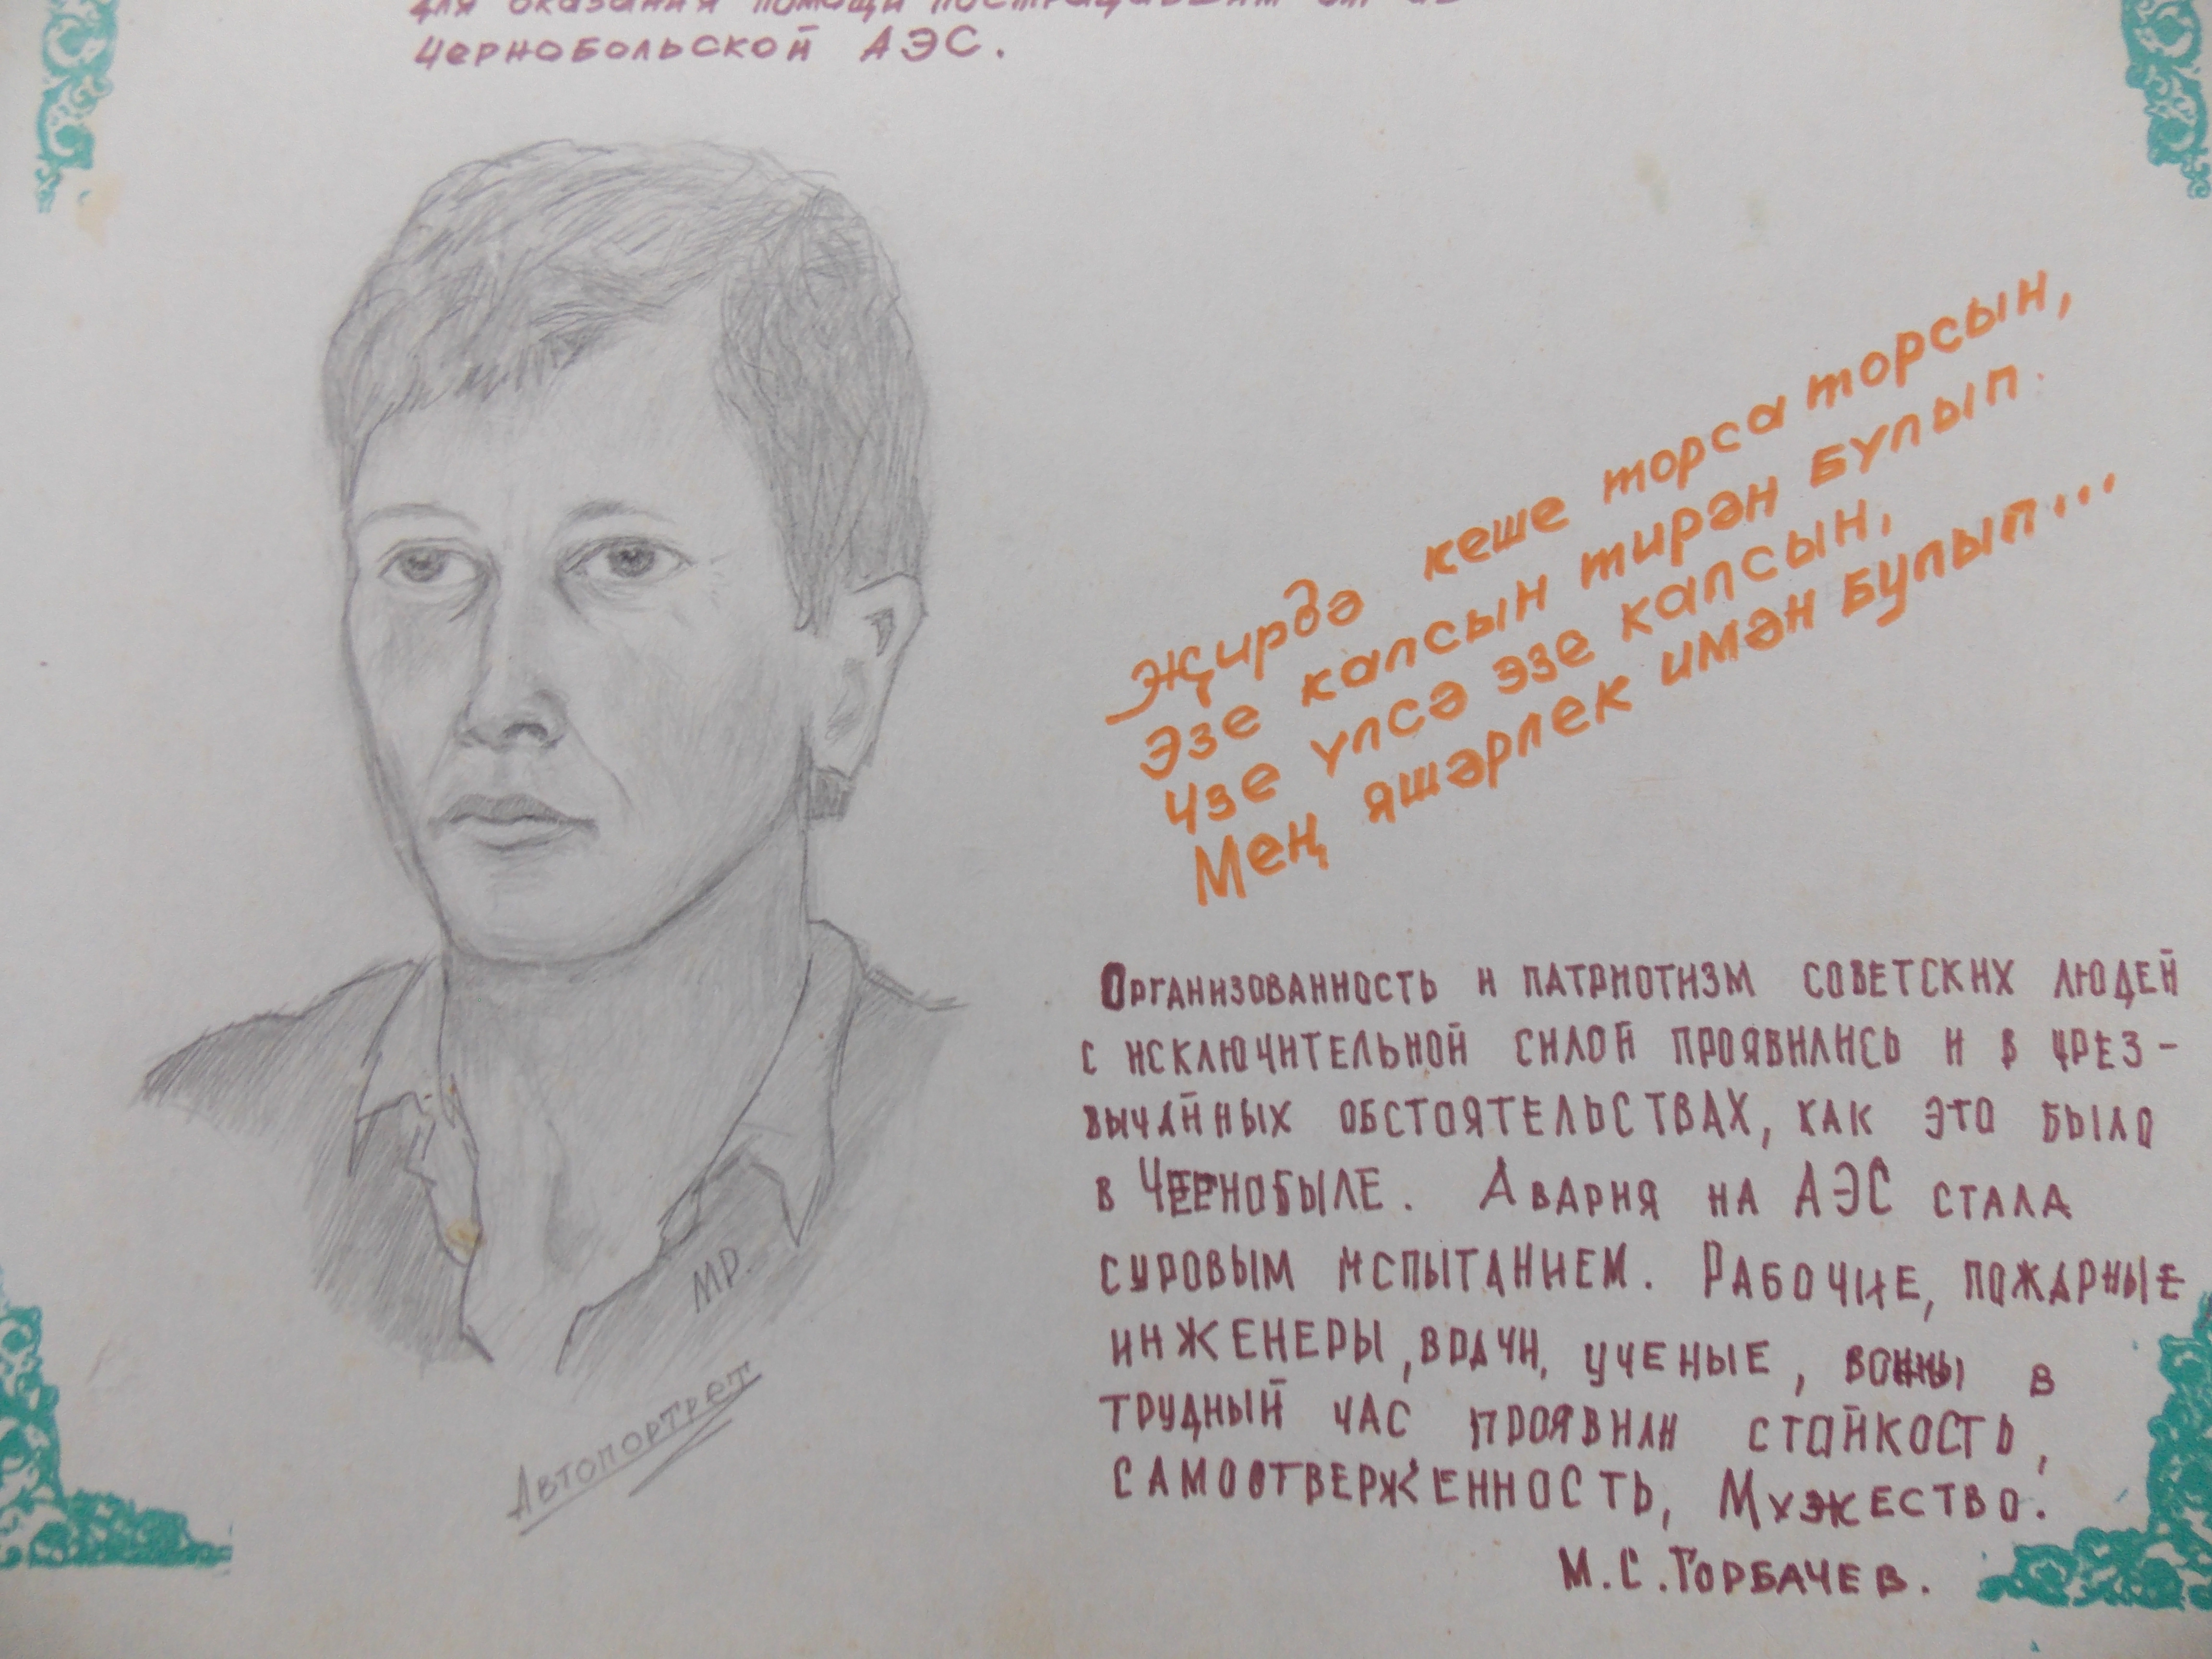 для оказания помощи пострадавшим от
Чернобольской АЭС.
Җирдә кеше торса торсын,
Эзе калсын тирән булып.
Үзе үлсә эзе калсын,
Мең яшәрлек имән булып...
Организованность и патриотизм советских людей
с исключительной силой проявились и в чрез-
вычайных обстоятельствах, как это было
в Чернобыле. Авария на АЭС стала
суровым испытанием. Рабочие, пожарные
инженеры, врачи, ученые, воины в
трудный час проявили стойкость,
самоотверженность, Мужество.
М.С.Горбачев.
МР.
Автопортрет